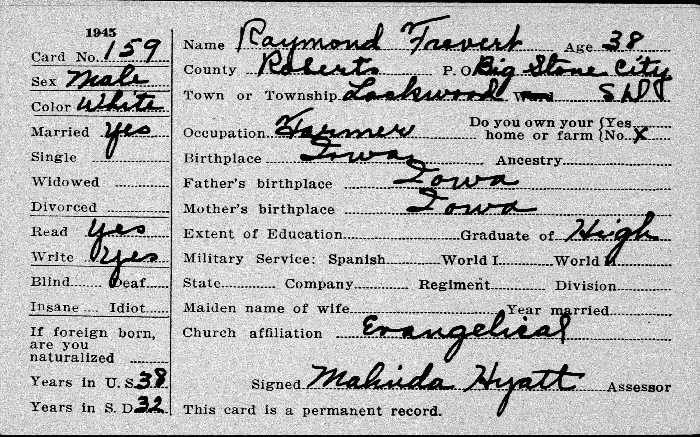 1945
Card No. 159
Sex Male
Color White
Married yes
Single
Widowed
Divorced
Read yes
Write yes
Blind Deaf
Insane Idiot
If foreign born,
are you
naturalized
Years in U. S. 38
Years in S. D. 32
Name Raymond Trevert Age 38
County Roberts P. O. Big Stone City
Town or Township Lockwood Ward S D
Occupation Farmer Do you own your home or farm {Yes {No X
Birthplace Iowa Ancestry
Father's birthplace Iowa
Mother's birthplace Iowa
Extent of Education Graduate of High
Military Service: Spanish World I World II
State Company Regiment Division
Maiden name of wife Year married
Church affiliation Evangelical
Signed Malinda Hyatt Assessor
This card is a permanent record.